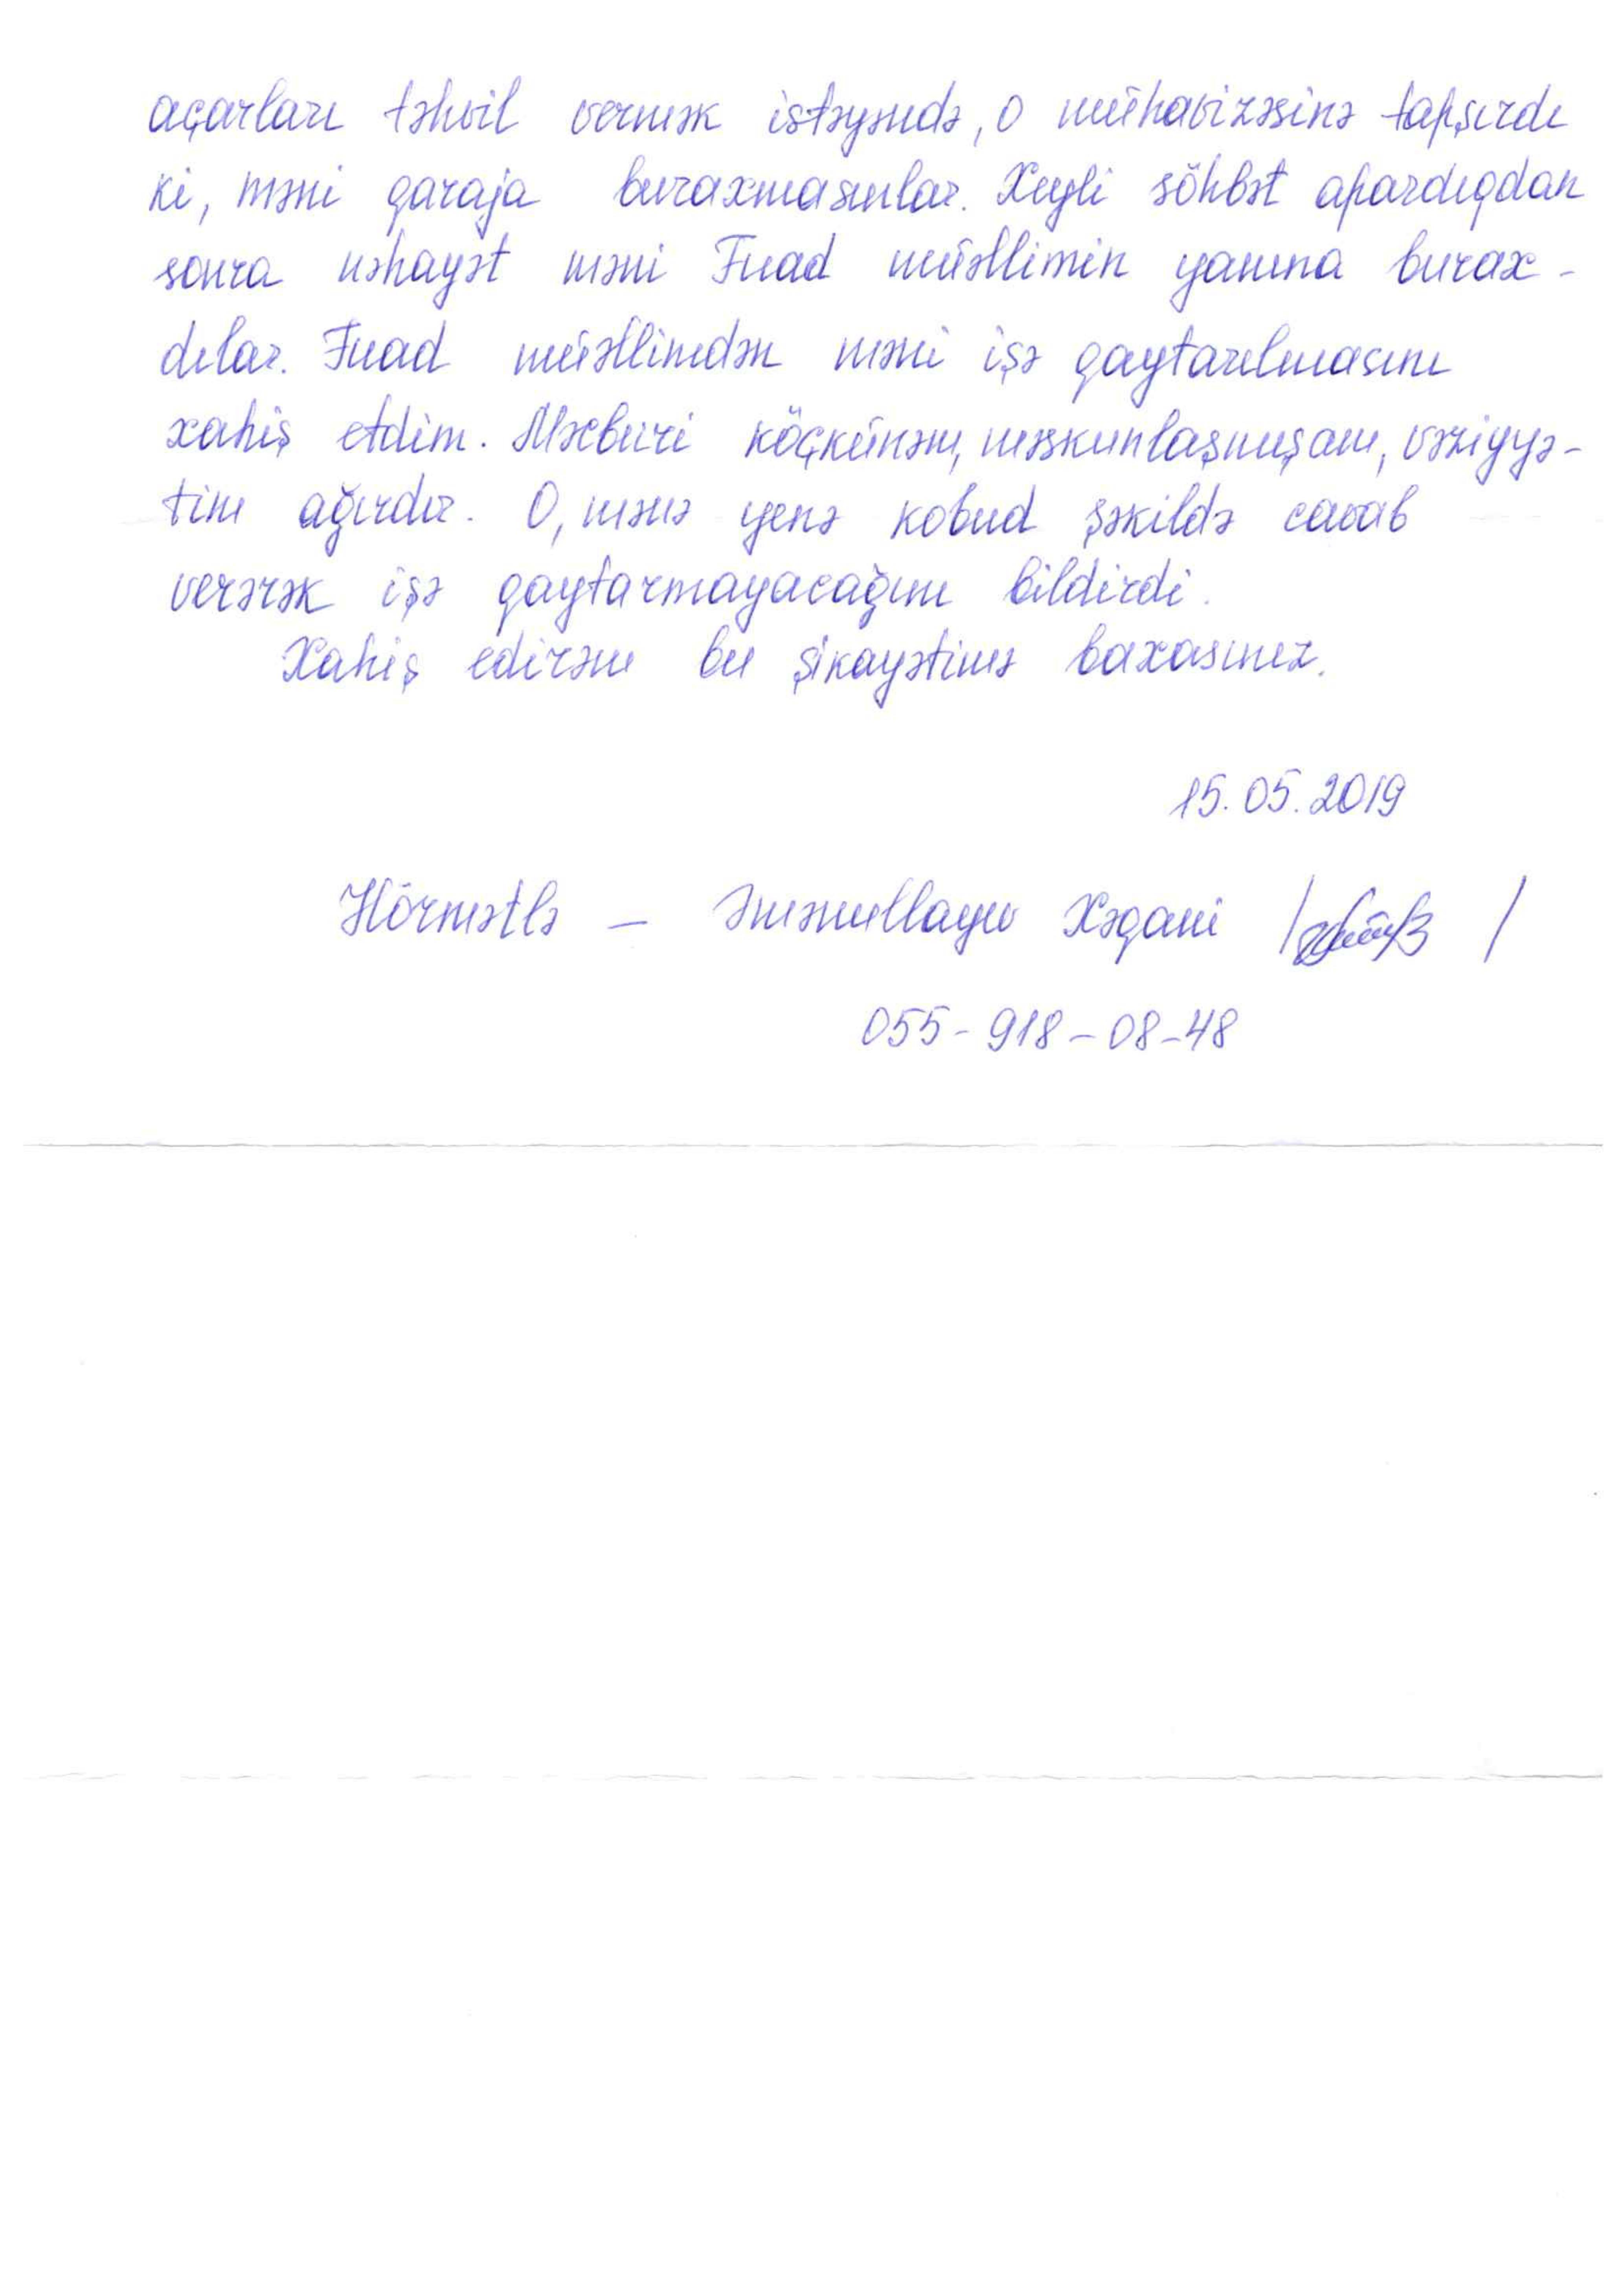 açarları təhvil vermək istəyəndə, o mühavizəsinə tapşırdı
ki, məni qaraja buraxmasınlar. Xeyli söhbət apardıqdan
sonra nəhayət məni Fuad müəllimin yanına burax-
dılar. Fuad müəllimdən məni işə qaytarılmasını
xahiş etdim. Məcburi köçkünəm, məskunlaşmışam, vəziyyə-
tim ağırdır. O, mənə yenə kobud şəkildə cavab
verərək işə qaytarmayacağını bildirdi.
Xahiş edirəm bu şikayətimə baxasınız.
15.05.2019
Hörmətlə – Əmənullayev Xəqani / /
055-918-08-48